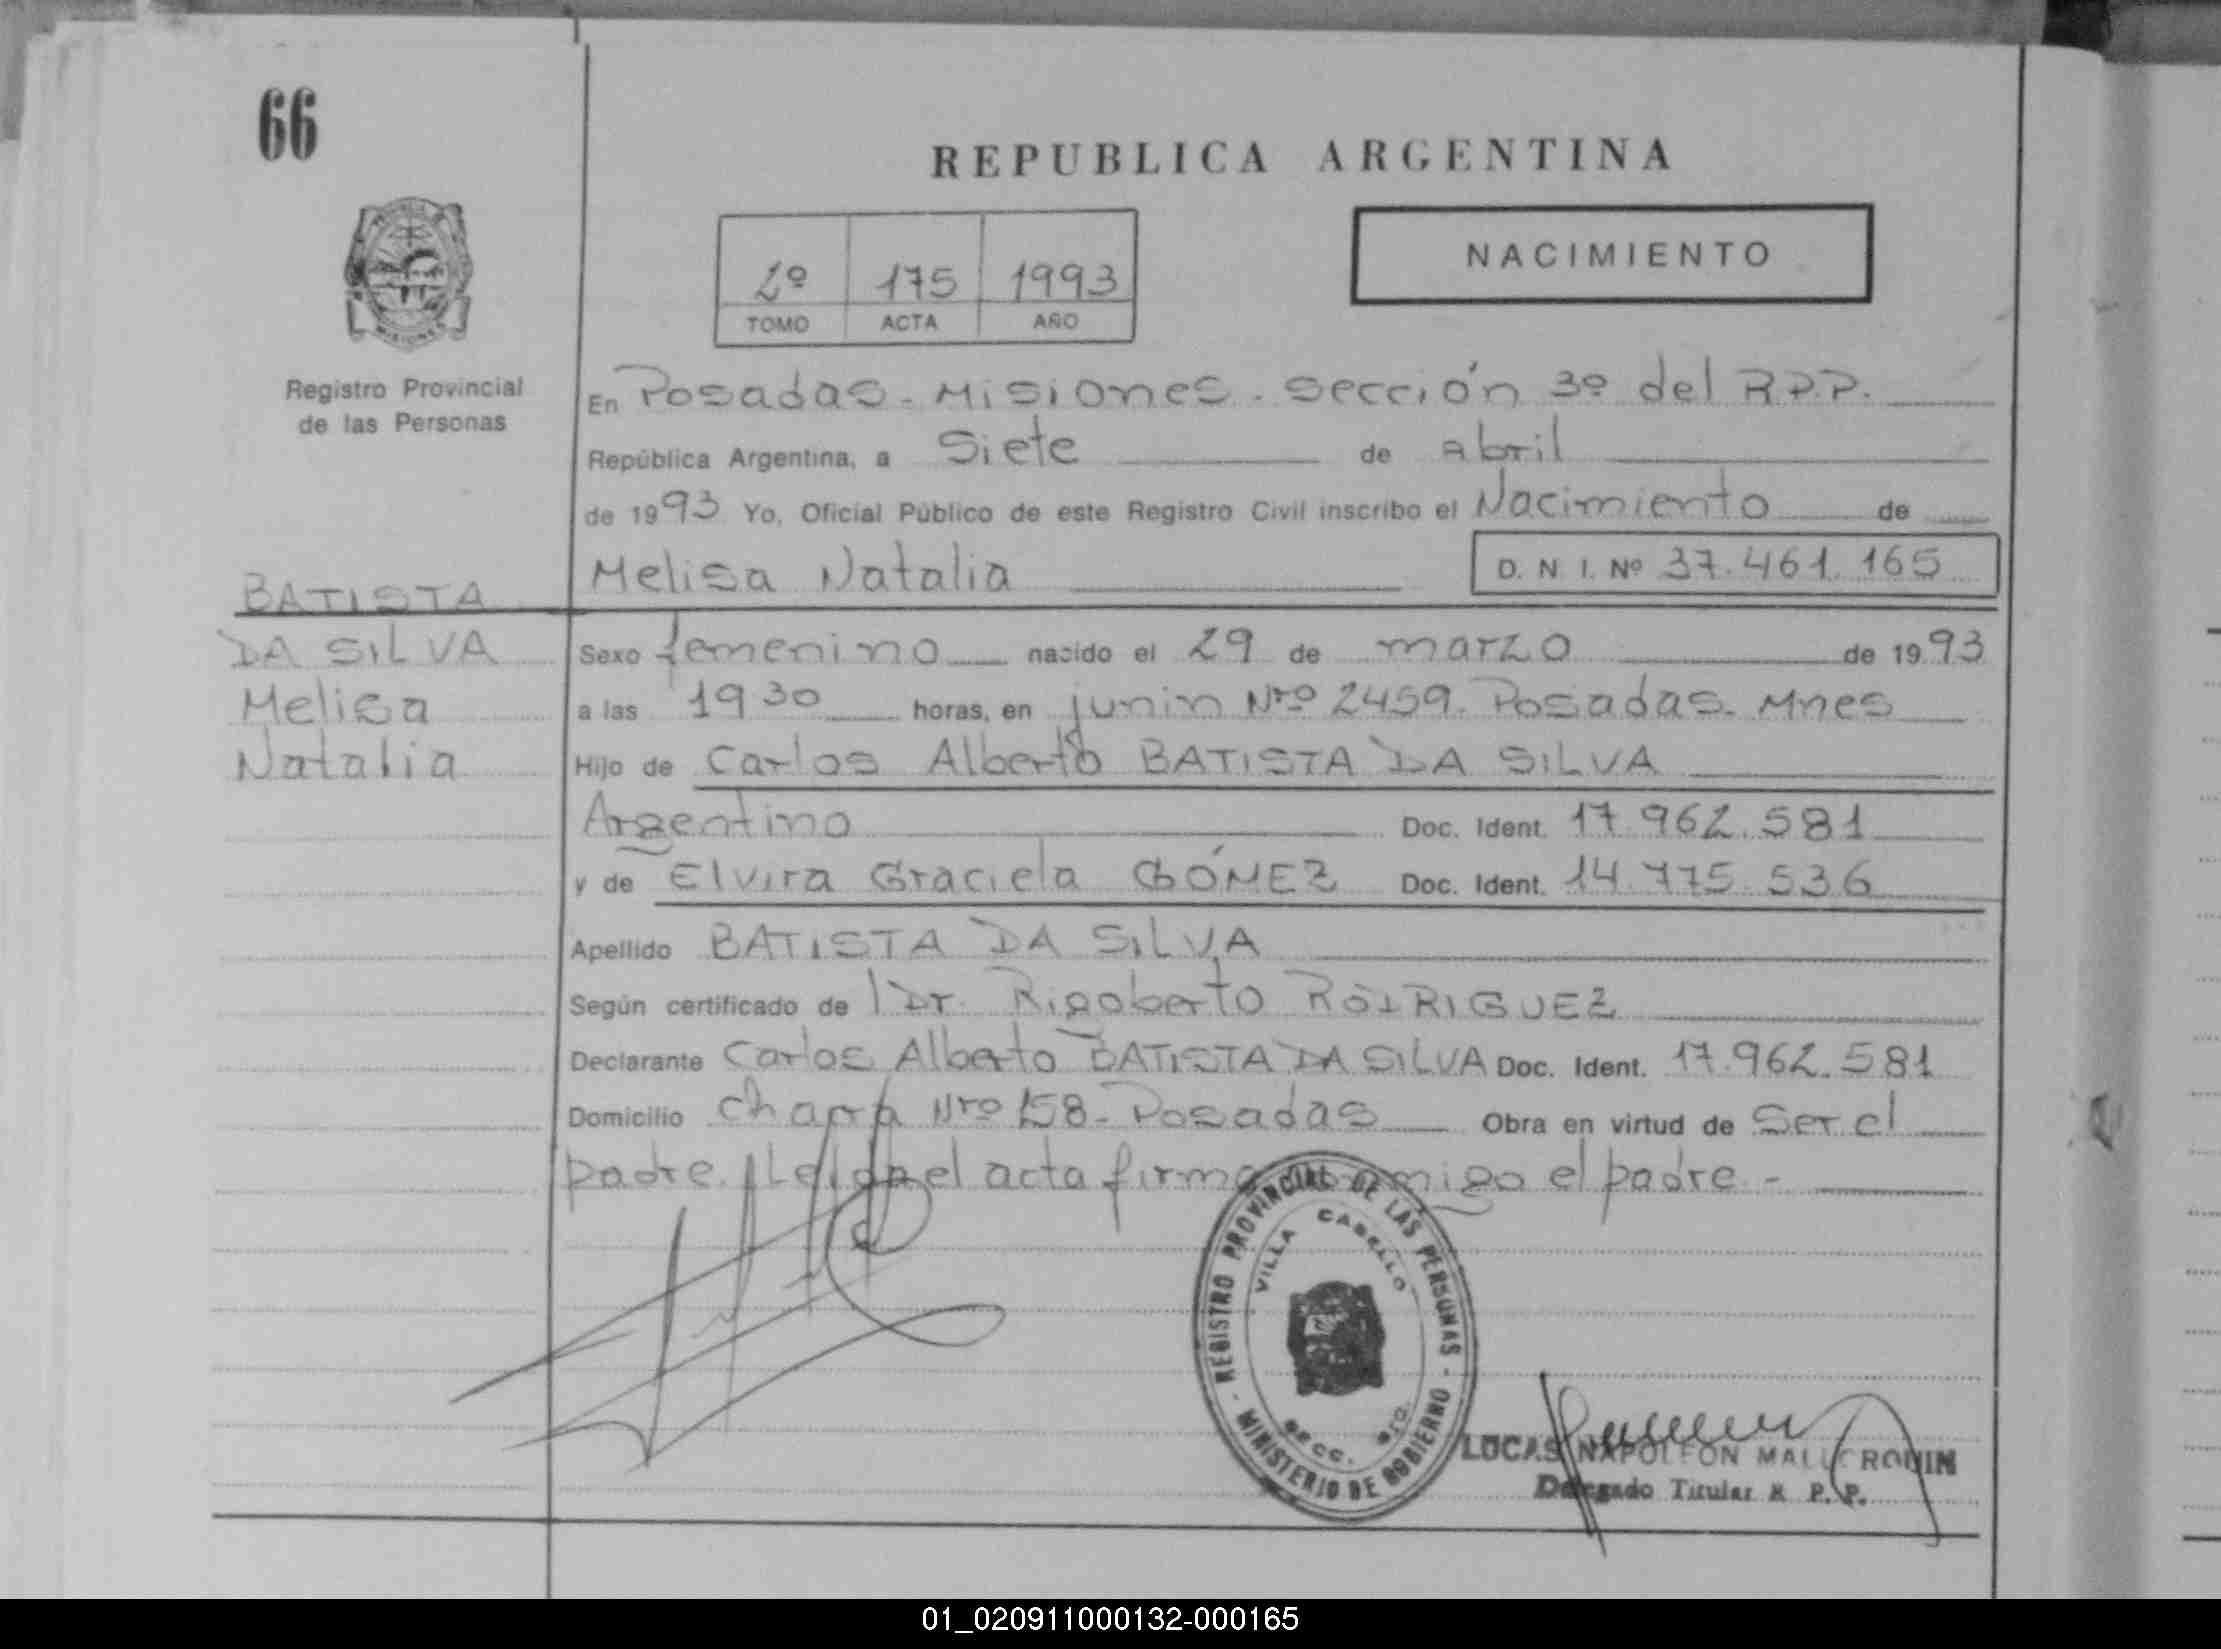 66
REPUBLICA ARGENTINA
NACIMIENTO
2º 175 1993
TOMO ACTA AÑO
MISIONES
Registro Provincial
de las Personas
En Posadas - Misiones - Sección 3º del R.P.P.
República Argentina, a Siete de abril
de 1993 Yo, Oficial Público de este Registro Civil inscribo el Nacimiento de
Melisa Natalia D.N.I. Nº 37.461.165
BATISTA
DA SILVA
Melisa
Natalia
Sexo femenino nacido el 29 de marzo de 1993
a las 19 30 horas, en junin Nro 2459. Posadas. Mnes
Hijo de Carlos Alberto BATISTA DA SILVA
Argentino Doc. Ident. 17.962.581
y de Elvira Graciela GÓMEZ Doc. Ident. 14.775.536
Apellido BATISTA DA SILVA
Según certificado de l Dr. Rigoberto RODRIGUEZ
Declarante Carlos Alberto BATISTA DA SILVA Doc. Ident. 17.962.581
Domicilio chacra Nro 158 - Posadas Obra en virtud de Ser el
padre. Leida el acta firma conmigo el padre. -
REGISTRO PROVINCIAL DE LAS PERSONAS - MINISTERIO DE GOBIERNO -
VILLA CABELLO
SECC.
LUCAS NAPOLEON
Delegado Titular R. P. P.
01_020911000132-000165